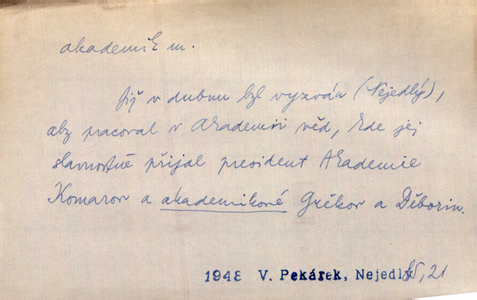 akademik m.
Již v dubnu byl vyzván (Nejedlý),
aby pracoval v Akademii věd, kde jej
slavnostně přijal president Akademie
Komarov a akademikové Grěkov a Děborin.
1948 V. Pekárek, Nejedlý 85, 21